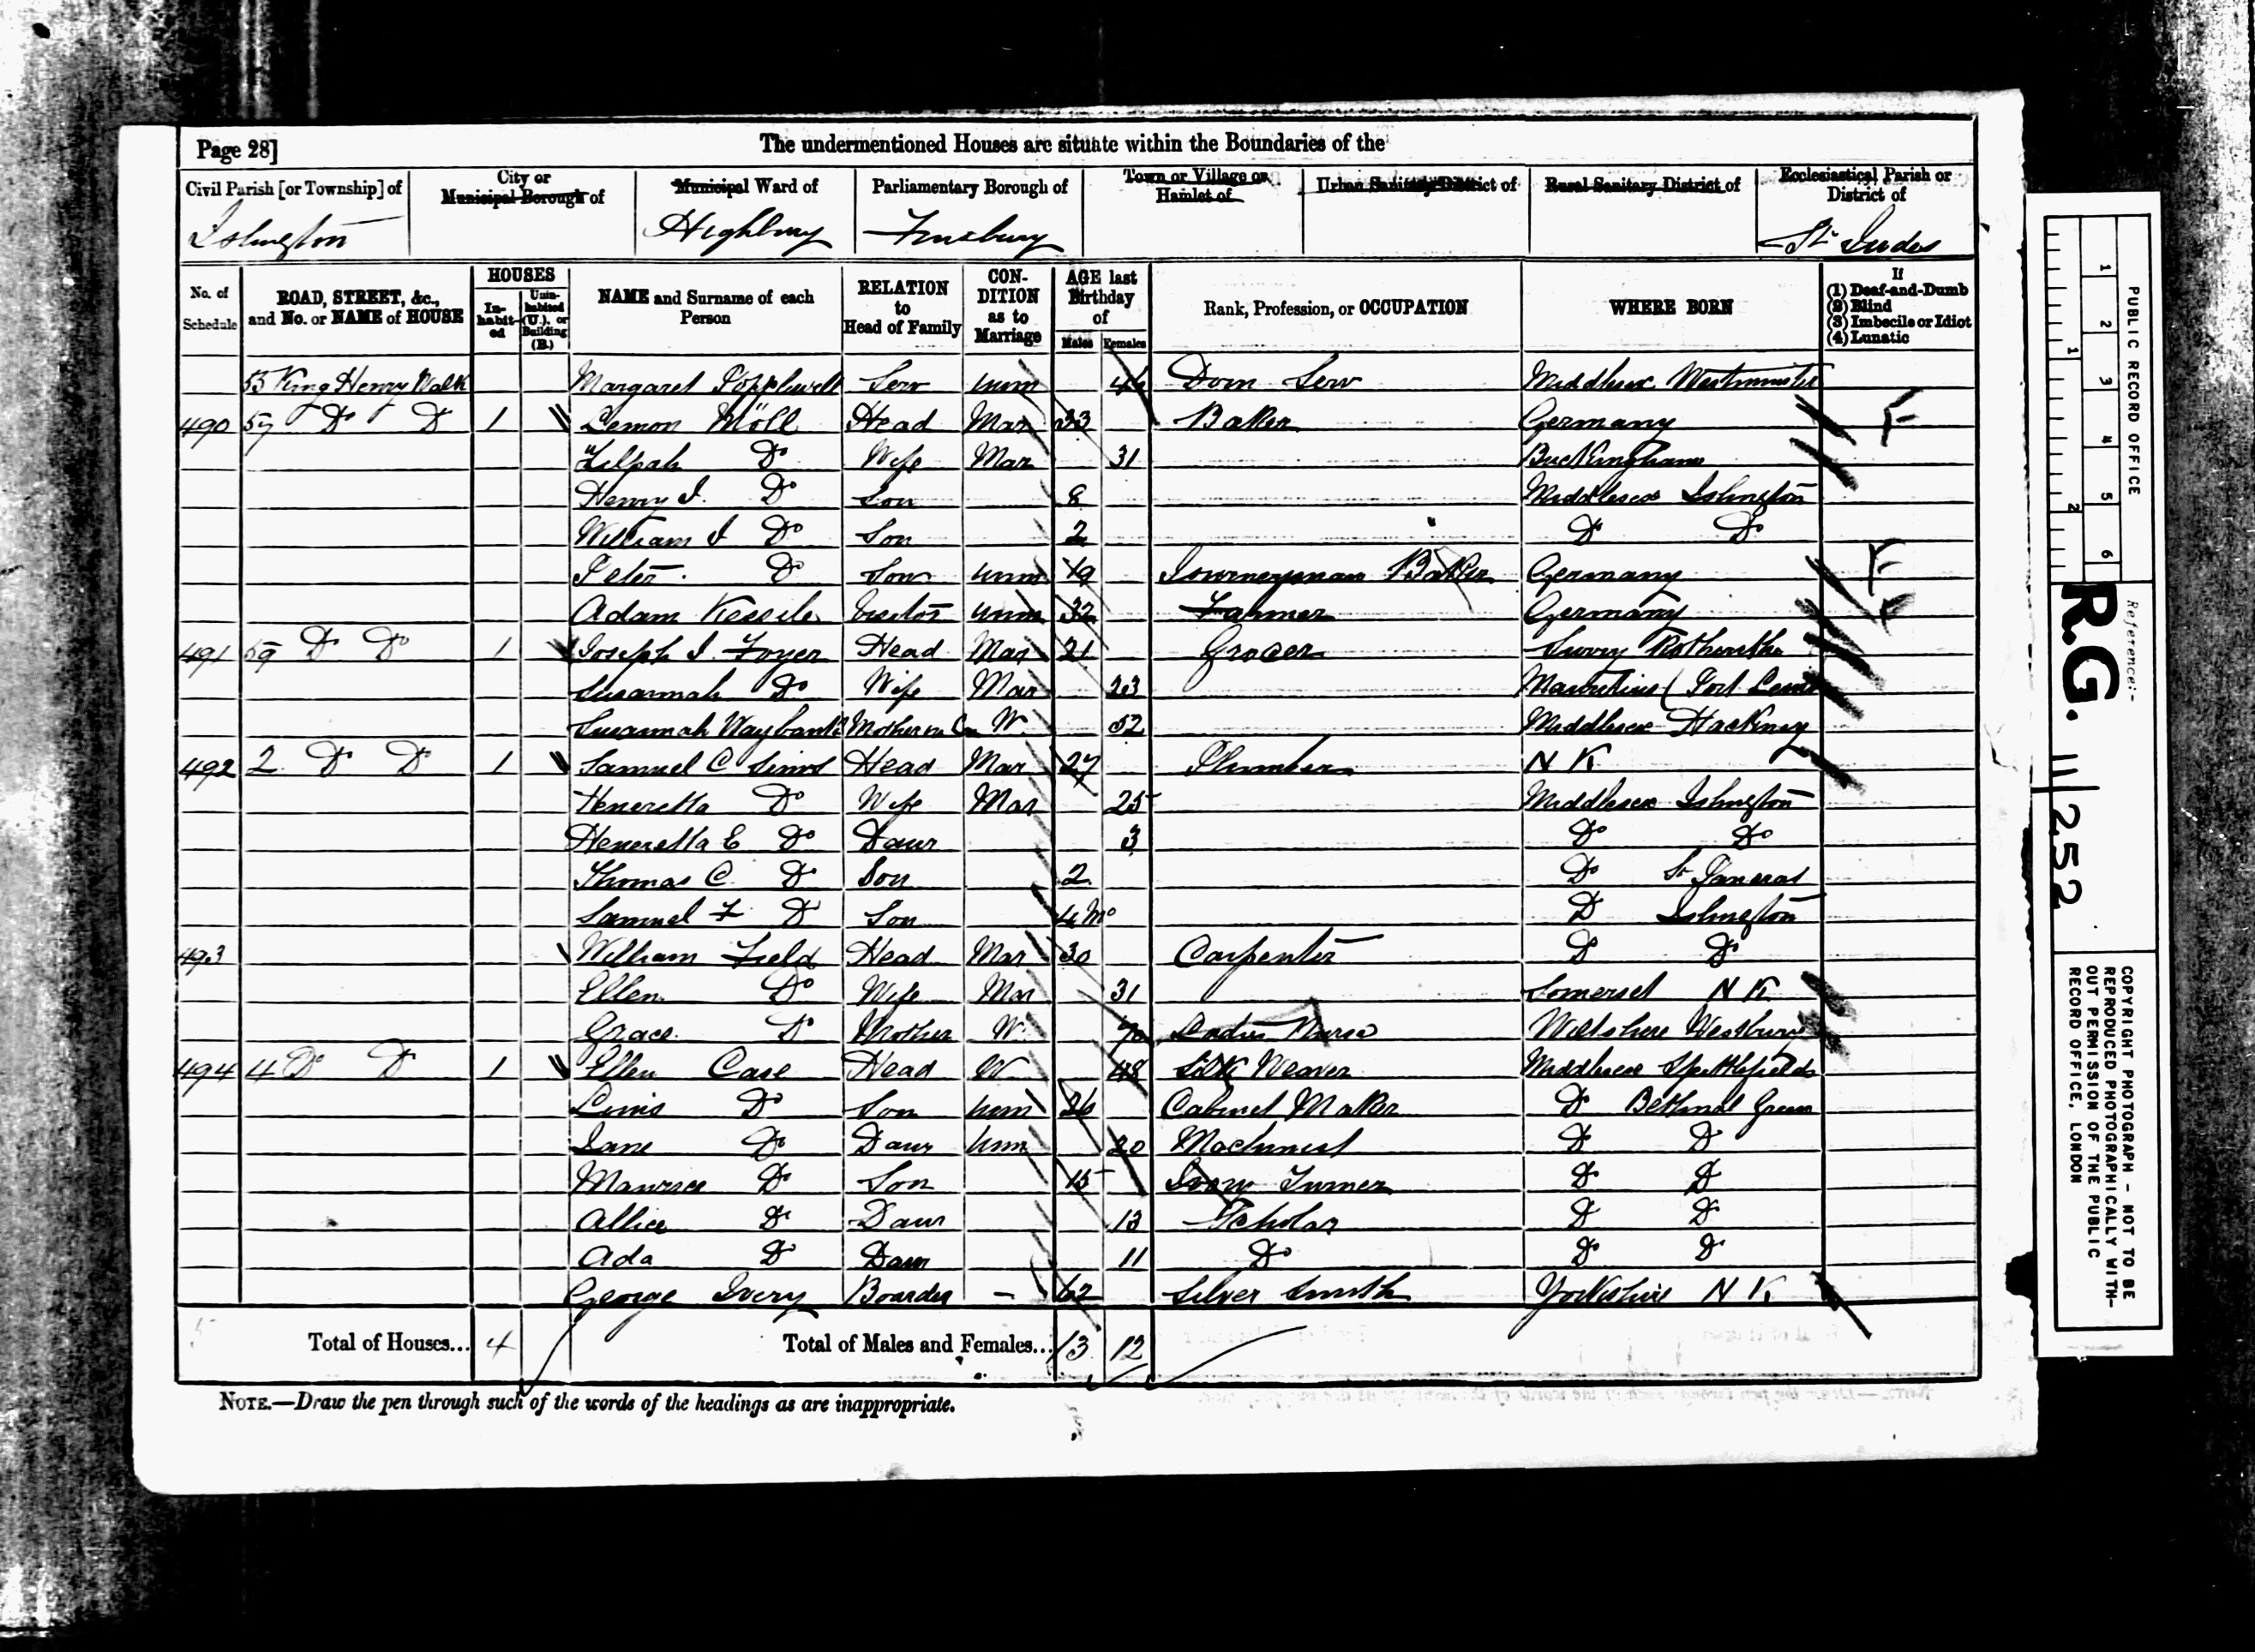 Page 28]
The undermentioned Houses are situate within the Boundaries of the
Civil Parish [or Township] of
City or Municipal Borough of
Municipal Ward of
Parliamentary Borough of
Town or Village or Hamlet of
Urban Sanitary District of
Rural Sanitary District of
Ecclesiastical Parish or District of
Islington Highbury Finsbury St Judes
No. of Schedule
ROAD, STREET, &c., and No. or NAME of HOUSE
HOUSES
In-habit-ed
Unin-habited (U.), or Building (B.)
NAME and Surname of each Person
RELATION to Head of Family
CON-DITION as to Marriage
AGE last Birthday of
Males Females
Rank, Profession, or OCCUPATION
WHERE BORN
If
(1) Deaf-and-Dumb
(2) Blind
(3) Imbecile or Idiot
(4) Lunatic
55 King Henry Walk Margaret Popplewell Serv Unm 46 Dom Serv Middlesex Westminster
490 57 Do Do 1 Lemon Möll Head Mar 33 Baker Germany F
Zilpah Do Wife Mar 31 Buckingham
Henry J. Do Son 8 Middlesex Islington
William J Do Son 2 Do Do
Peter Do Son Unm 19 Journeyman Baker Germany F
Adam Kessele Visitor Unm 32 Farmer Germany F
491 59 Do Do 1 Joseph J. Foyer Head Mar 21 Grocer Surry Rotherithe
Susannah Do Wife Mar 23 Mauritius (Port Louis
Susannah Waybank Mother in Law W 52 Middlesex Hackney
492 2 Do Do 1 Samuel C Sims Head Mar 27 Plumber N K
Heneretta Do Wife Mar 25 Middlesex Islington
Heneretta E Do Daur 3 Do Do
Thomas C Do Son 2 Do St Pancras
Samuel F Do Son 4 Mo Do Islington
493 William Field Head Mar 30 Carpenter Do Do
Ellen Do Wife Mar 31 Somerset N K
Grace Do Mother W 70 Ladies Nurse Wiltshire Westbury
494 4 Do Do 1 Ellen Case Head W 48 Silk Weaver Middlesex Spittlefields
Louis Do Son Unm 26 Cabinet Maker Do Bethnal Green
Jane Do Daur Unm 20 Machinest Do Do
Maurice Do Son 15 Ivory Turner Do Do
Allice Do Daur 13 Scholar Do Do
Ada Do Daur 11 Do Do Do
George Ivery Boarder - 62 Silver Smith Yorkshire N K
Total of Houses... 4 Total of Males and Females... 13 12
NOTE.—Draw the pen through such of the words of the headings as are inappropriate.
PUBLIC RECORD OFFICE
1 2 3 4 5 6
1 2
Reference:-
R.G. 11/252
COPYRIGHT PHOTOGRAPH - NOT TO BE
REPRODUCED PHOTOGRAPHICALLY WITH-
OUT PERMISSION OF THE PUBLIC
RECORD OFFICE, LONDON